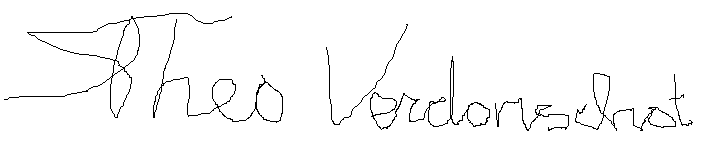 Theo Verdonschot